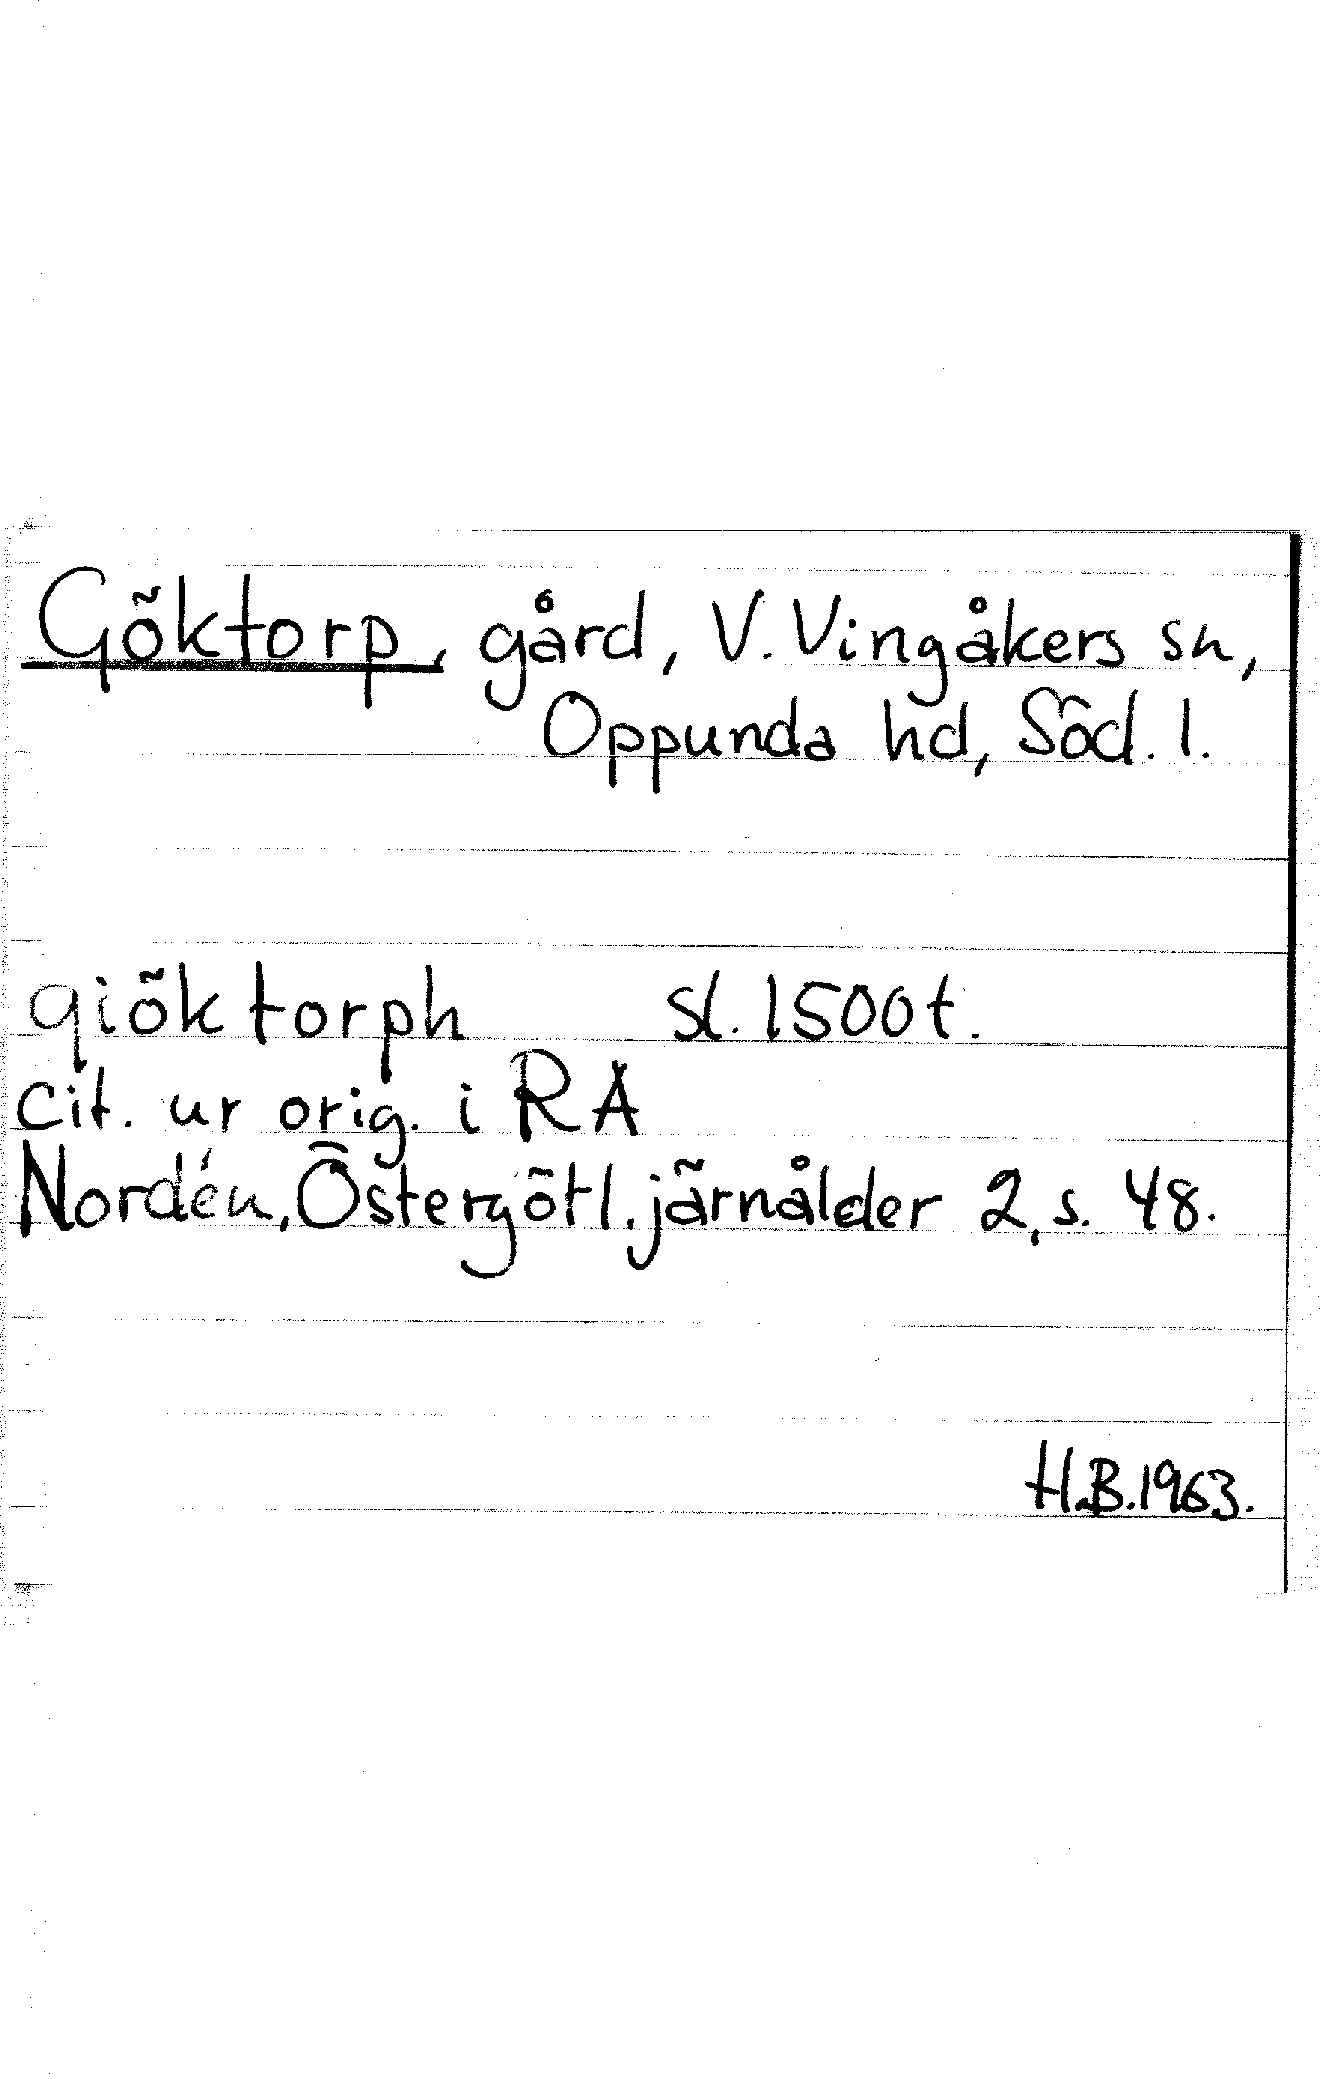 Göktorp, gård, V. Vingåkers sn,
Oppunda hd, Söd. l.
giöktorph sl. 1500t.
Cit. ur orig. i RA
Nordén, Östergötl. järnålder 2, s. 48.
H.B. 1963.